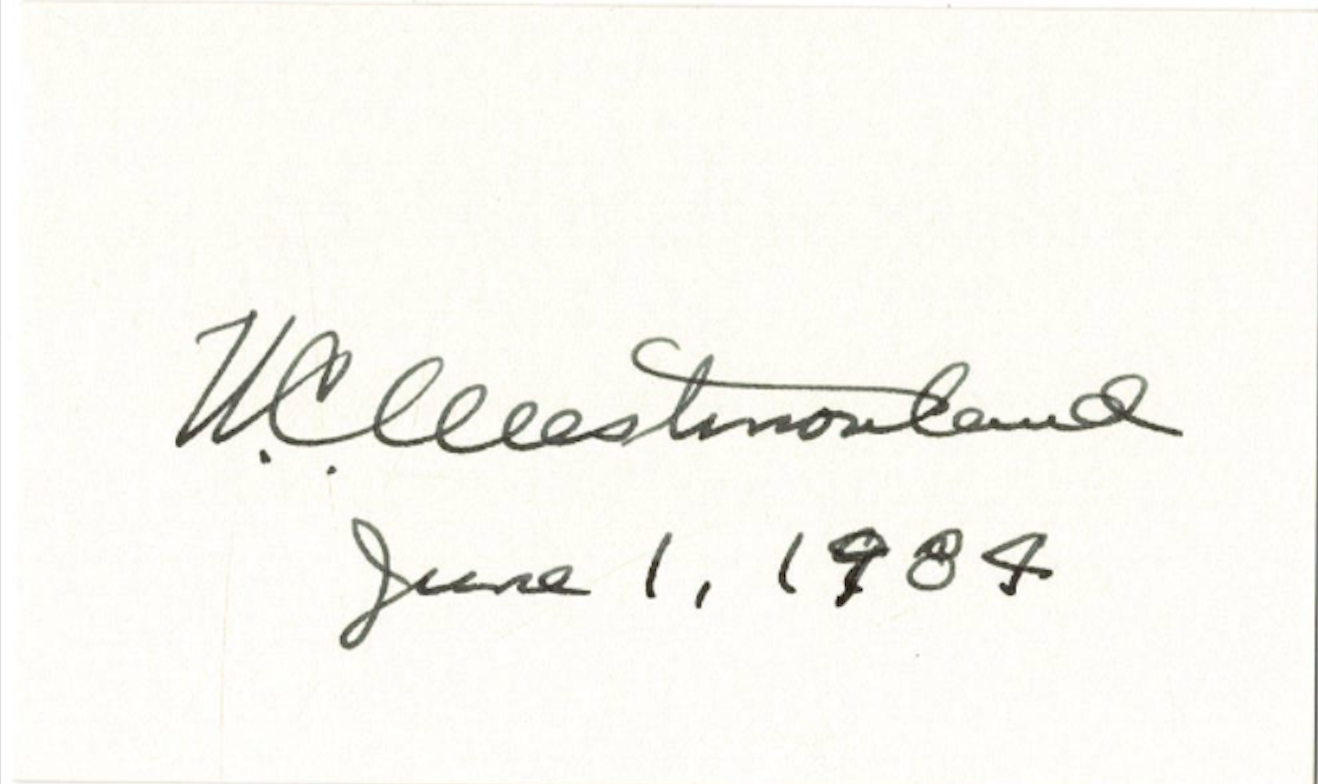 W.C. Westmoreland
June 1, 1984